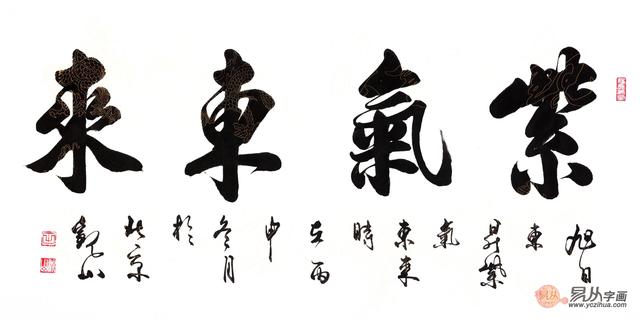 紫氣東來
旭日東昇紫氣東來時在丙申冬月於北京觀山
易从字画
www.yczihua.com